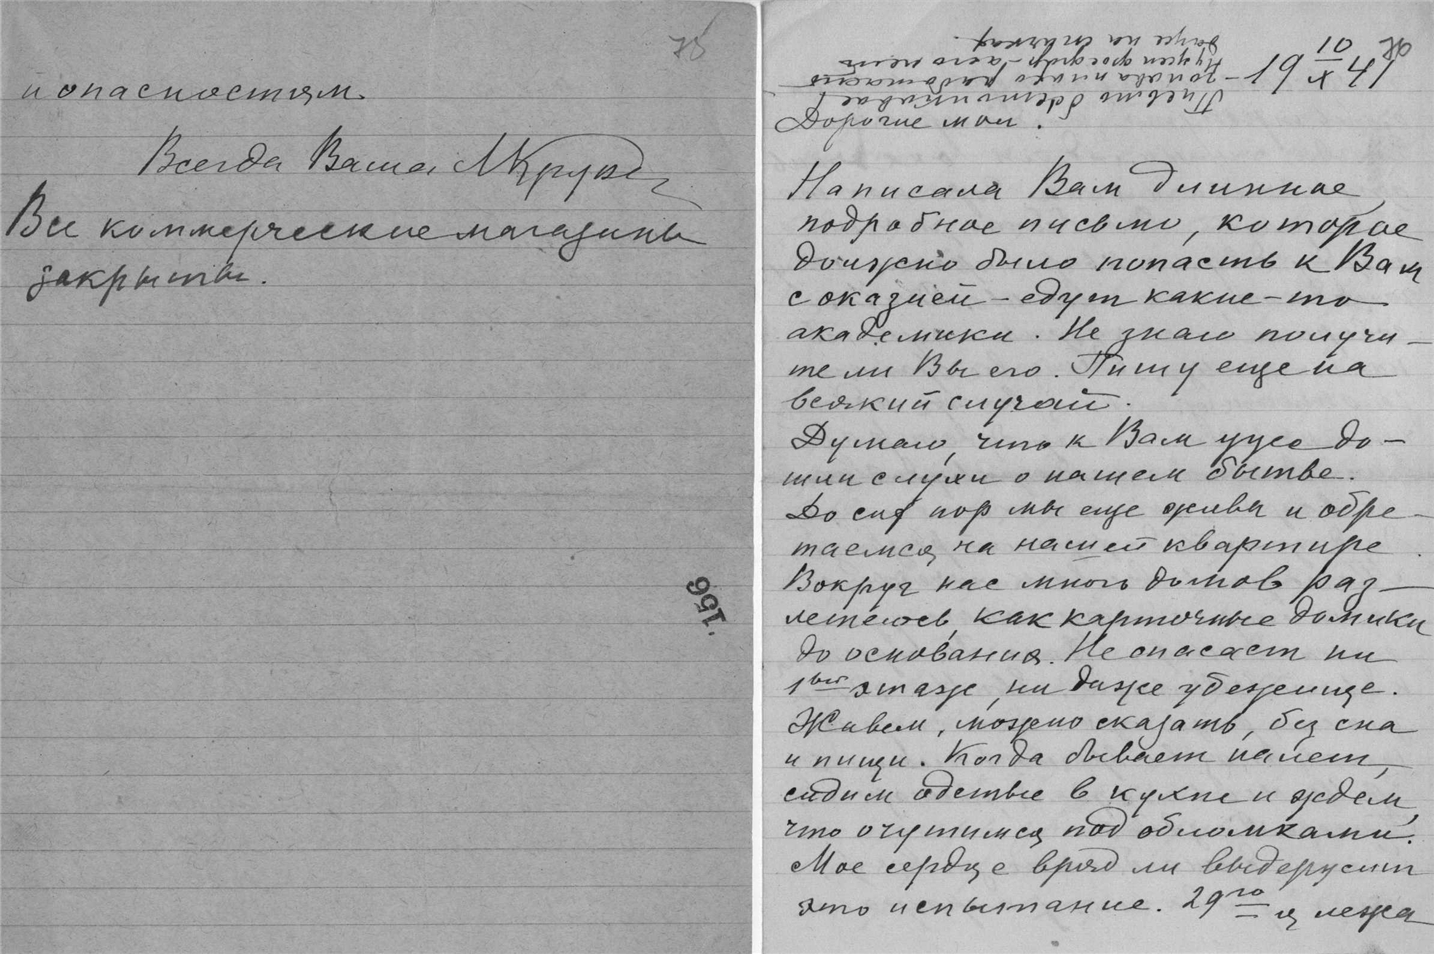 75
и опасностям.
Всегда Ваша МКругл
Все коммерческие магазины
закрыты.
156
19 10/X 41
Письмо бестолковае!
голова плохо работает
Нужен фосфор - а его нет
даже на спичках.
Дорогие мои.
Написала Вам длинное
подробное письмо, которое
должно было попасть к Вам
с оказией - едут какие-то
академики. Не знаю получи-
те ли Вы его. Пишу еще на
всякий случай.
Думаю, что к Вам уже до-
шли слухи о нашем бытье.
До сих пор мы еще живы и обре-
таемся на нашей квартире.
Вокруг нас много домов раз-
летелось, как карточные домики
до основания. Не спасает ни
1ый этаж, ни даже убежище.
Живем, можно сказать, без сна
и пищи. Когда бывает налет,
сидим одетые в кухне и ждем,
что очутимся под обломками.
Мое сердце вряд ли выдержит
это испытание. 29го я лежа